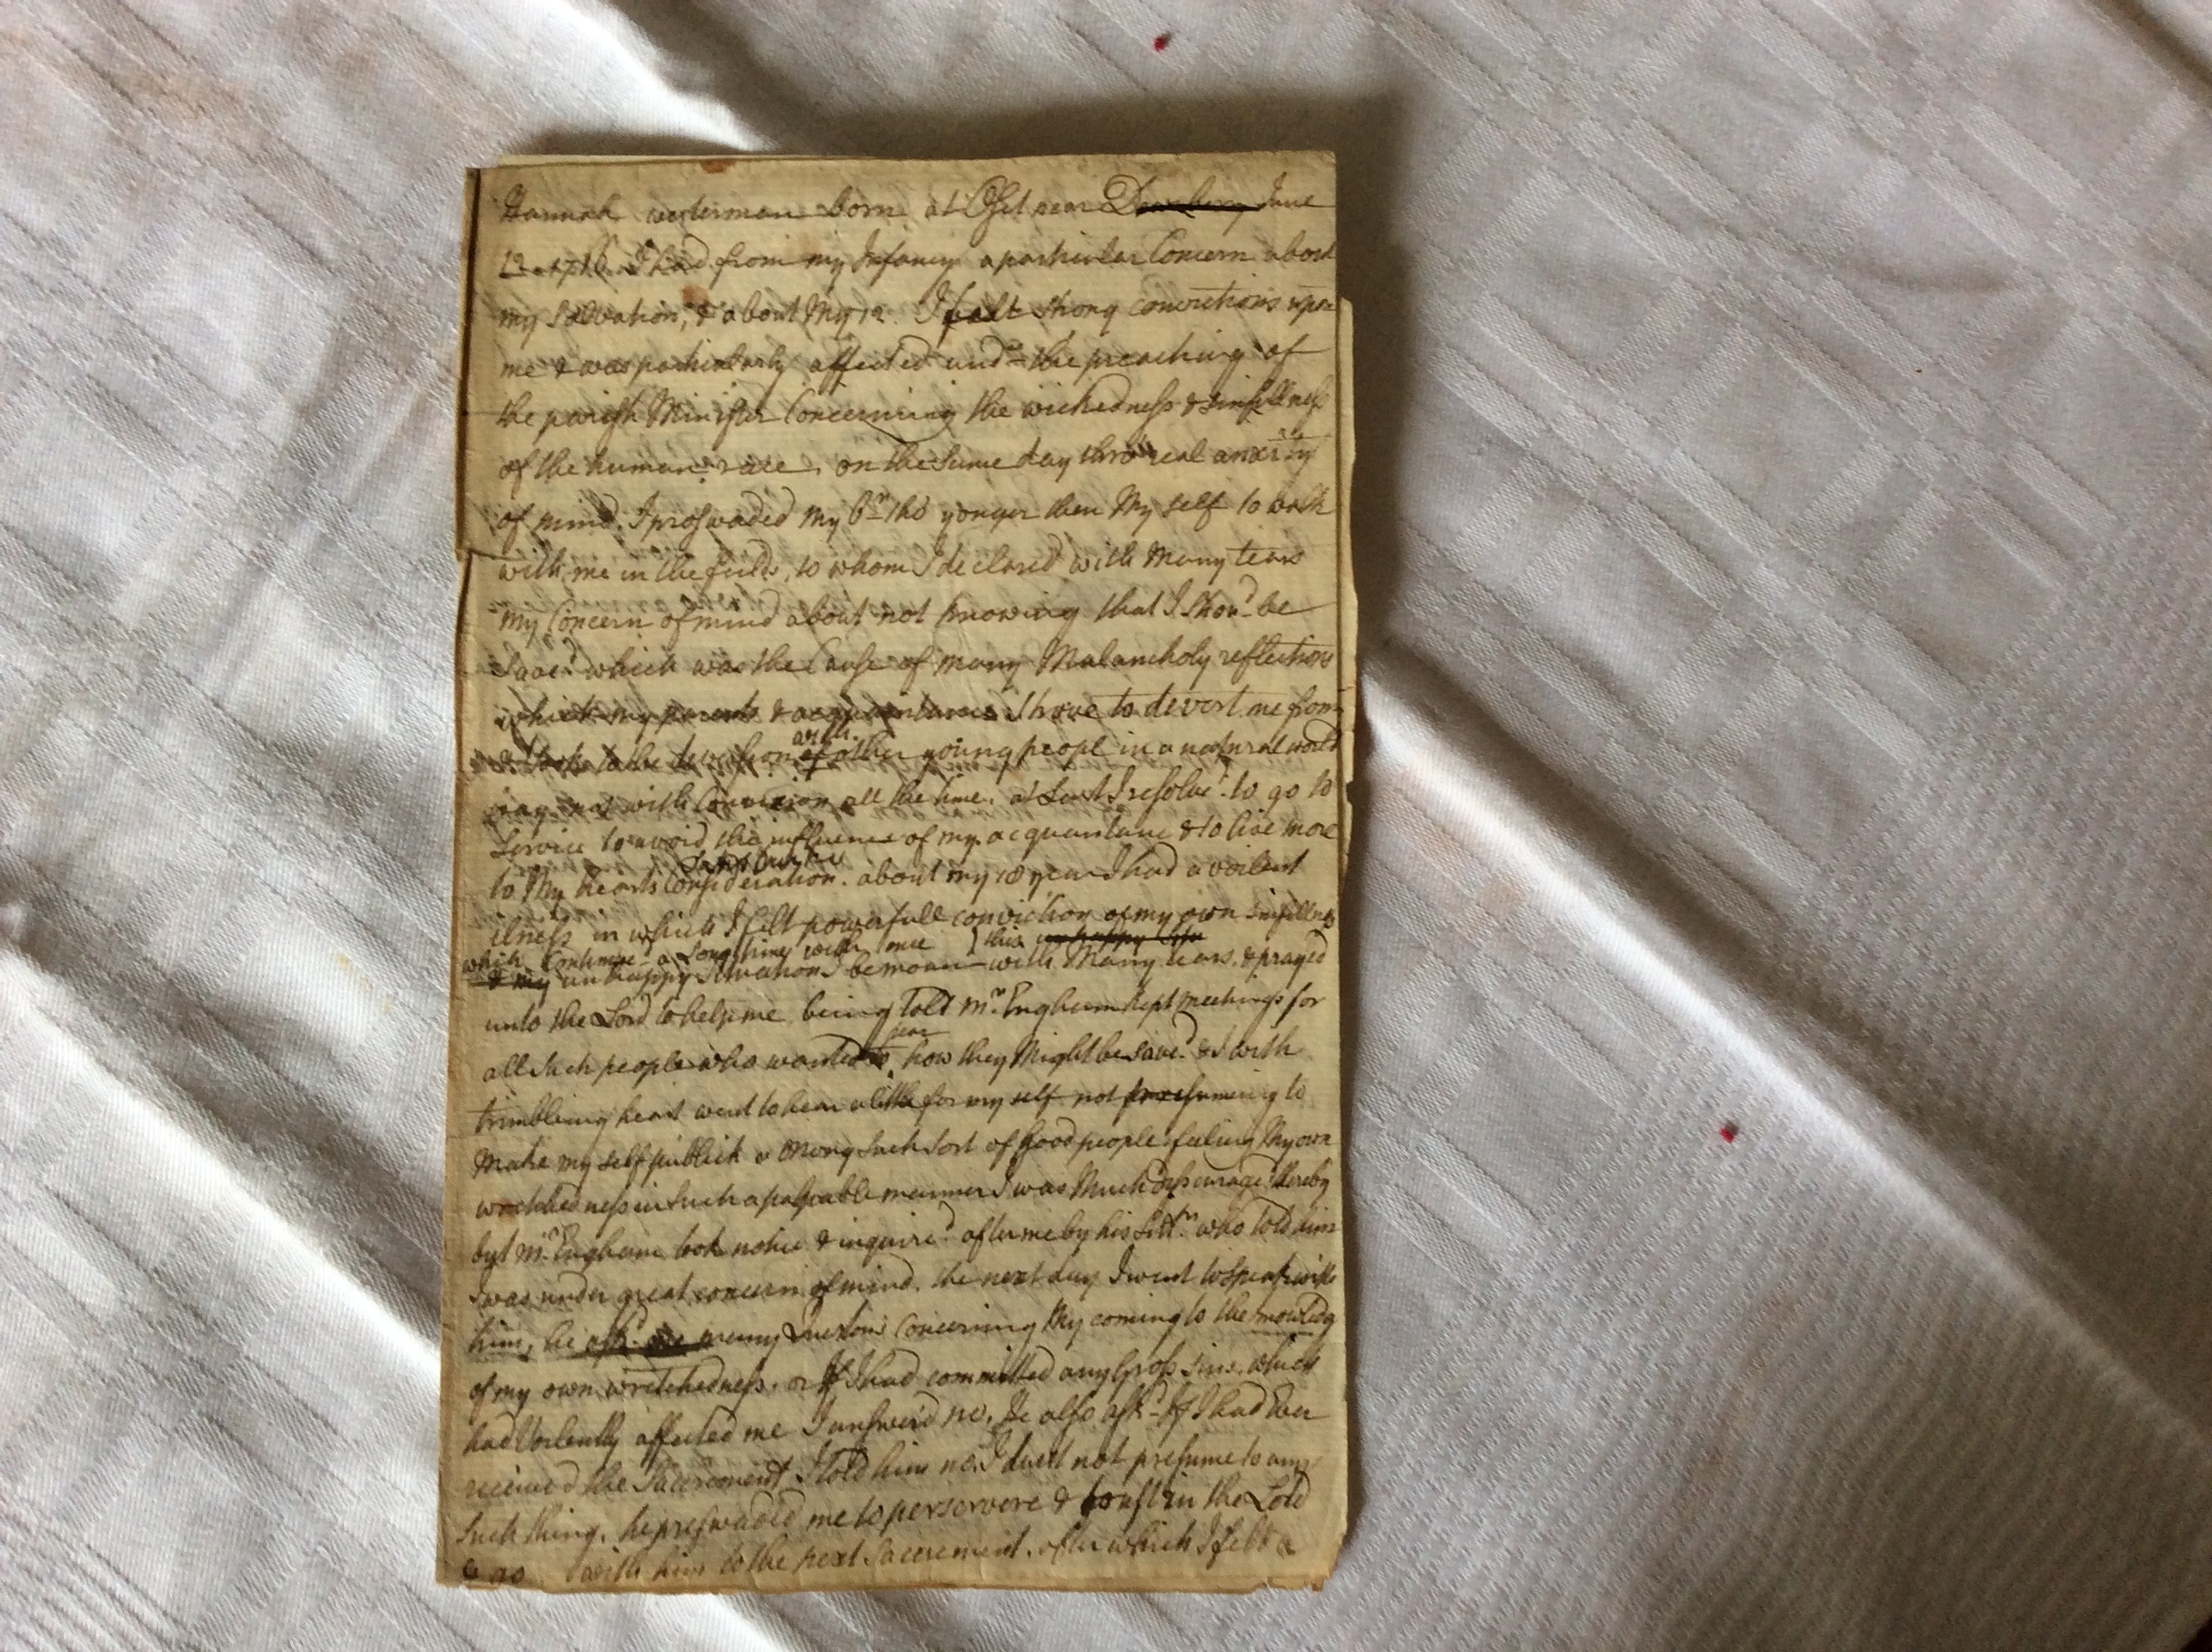 Hannah westerman born at Oset near Dewsbery June
I had from my Infancy a particular Concern about
my Salvation, & about My 12 I fealt strong convictions upon
me & was particularly affected undr the preaching of
the parish Minister Concerning the wickedness & sinfullness
of the human race, on the same day thro real anxity
of mind. I preswaded my Br tho yonger then My self to walk
with me in the fields, to whom I declared with Many tears
my Concern of mind about not knowing that I Shoud be
Saved which was the Cause of many Malancholy reflections
which my parents & acquaintances Strove to divert me from
with
& took to the diversion of other young people in a natural world
way not with Conviction all the time. at Last I resolvd to go to
Service to avoid the influence of my acquantance & to live more
to My hearts Consideration. about my 18 year I had a voilent
ilness in which I felt powerfull conviction of my own sinfullness
which Continued a Long time with me this unhappy
& my unhappy Situation I bemoand with Many tears. & prayed
unto the Lord to help me being Told Mr Engham kept meetings for
hear
all Such people who wanted to how they Might be saved & I with
trimbleing heart went to hear a little for my self not presumeing to
Make my self publick a mong such sort of Good people feeling My own
wretchedness in such a palpable manner I was Much discouraged thereby
but Mr Engham took notice & inquired after me by his Sistr who Told him
I was under great concern of mind. the next day I went to speak with
him, he askd me many Questions Concerning My coming to the knowledg
of my own wretchedness. or If I had committed any Gross sins, which
had Voilently affected me I answerd no. He also askd If I had Ever
received the Sacrement I told him no. I durst not presume to any
such thing. he preswaded me to perservere & trust in the Lord
& go with him to the next Sacrement. after which I felt a